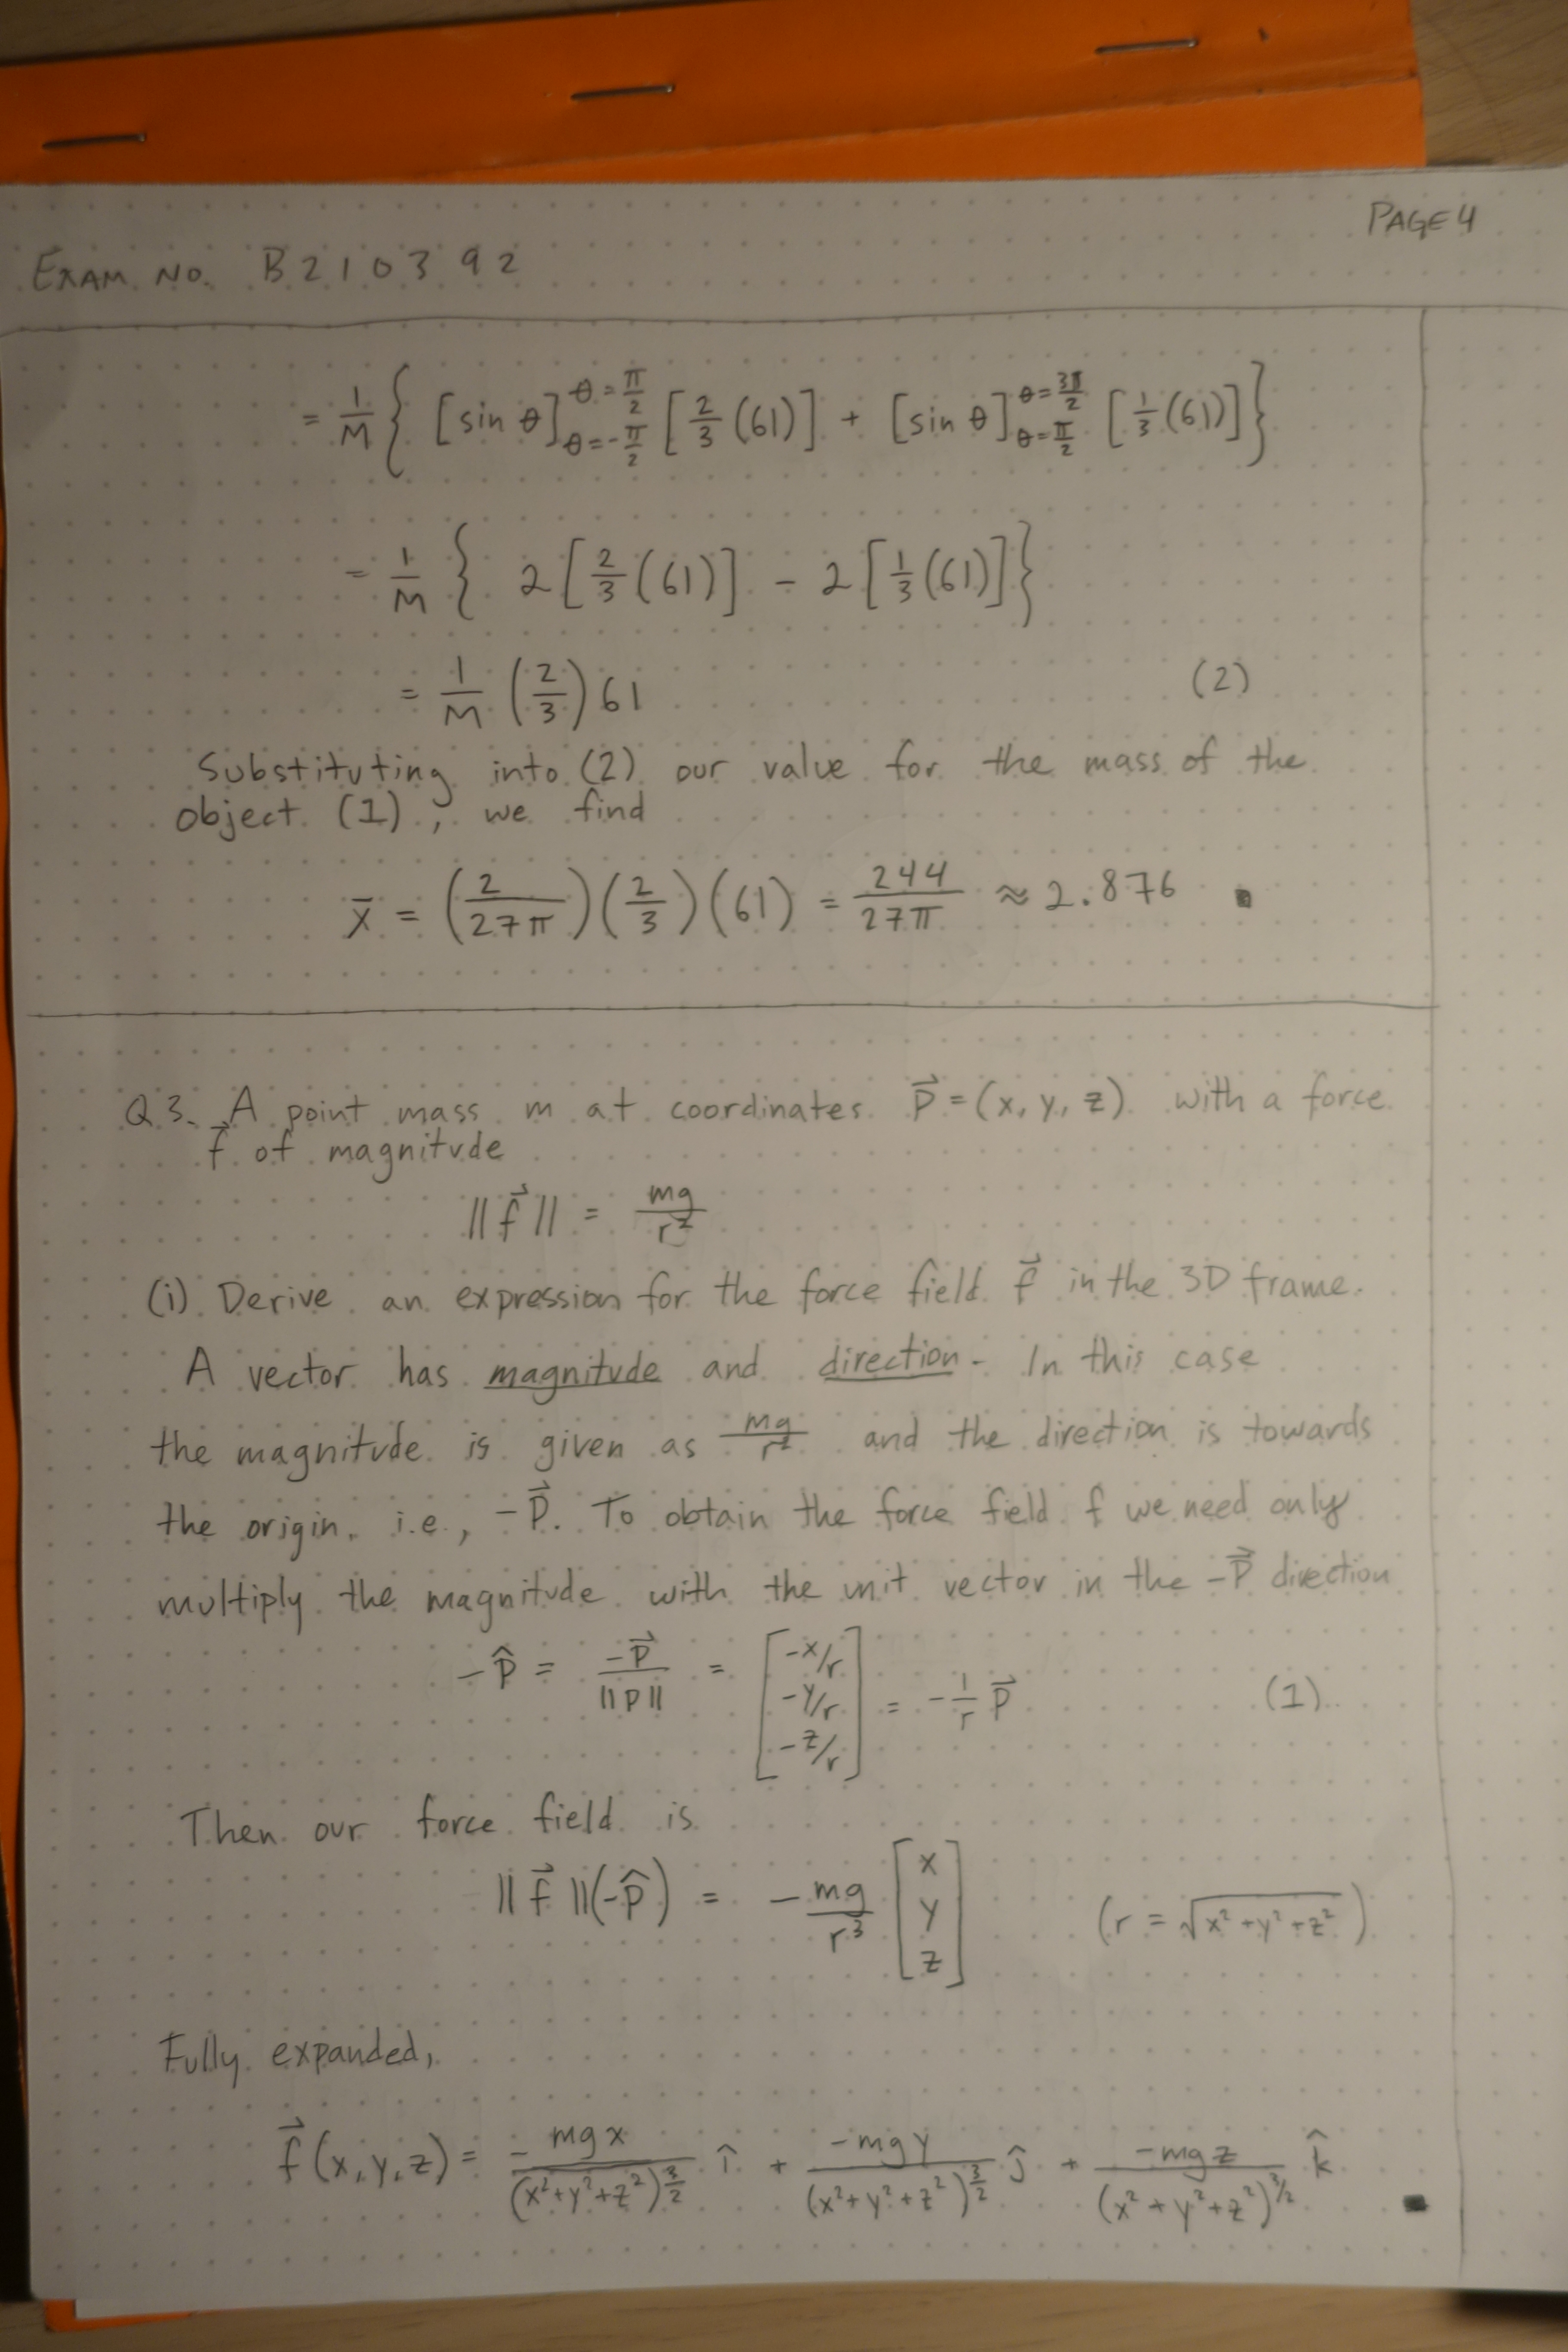 PAGE 4
EXAM NO. B210392
= 1/M { [sin θ]_{θ=-π/2}^{θ=π/2} [2/3 (61)] + [sin θ]_{θ=π/2}^{θ=3π/2} [1/3 (61)] }
= 1/M { 2 [2/3 (61)] - 2 [1/3 (61)] }
= 1/M (2/3) 61 (2)
Substituting into (2) our value for the mass of the
object (1), we find
x̄ = (2/27π)(2/3)(61) = 244/27π ≈ 2.876 ▪
Q3. A point mass m at coordinates p⃗ = (x, y, z) with a force
f⃗ of magnitude
||f⃗|| = mg/r²
(i) Derive an expression for the force field f⃗ in the 3D frame.
A vector has magnitude and direction. In this case
the magnitude is given as mg/r² and the direction is towards
the origin, i.e., -p⃗. To obtain the force field f we need only
multiply the magnitude with the unit vector in the -p⃗ direction
-p̂ = -p⃗/||p|| = [-x/r -y/r -z/r] = -1/r p⃗ (1)
Then our force field is
||f⃗||(-p̂) = -mg/r³ [x y z] (r = √(x²+y²+z²))
Fully expanded,
f⃗(x,y,z) = -mgx/(x²+y²+z²)^{3/2} î + -mgy/(x²+y²+z²)^{3/2} ĵ + -mgz/(x²+y²+z²)^{3/2} k̂ ▪